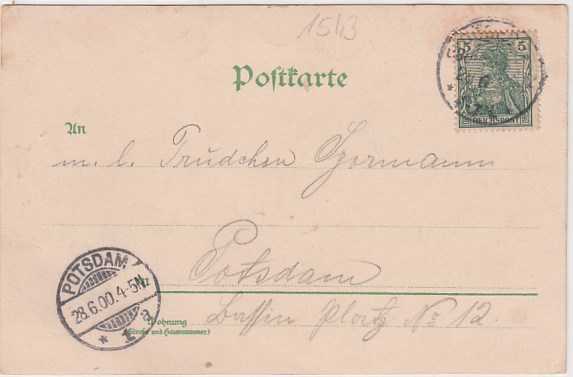 1543
5 5
REICHSPOST
Postkarte
An
m. l. Trudchen
Potsdam
Bassin Platz No 12.
Wohnung
(Straße und Hausnummer)
POTSDAM
28.6.00.4-5N.
* 1 a